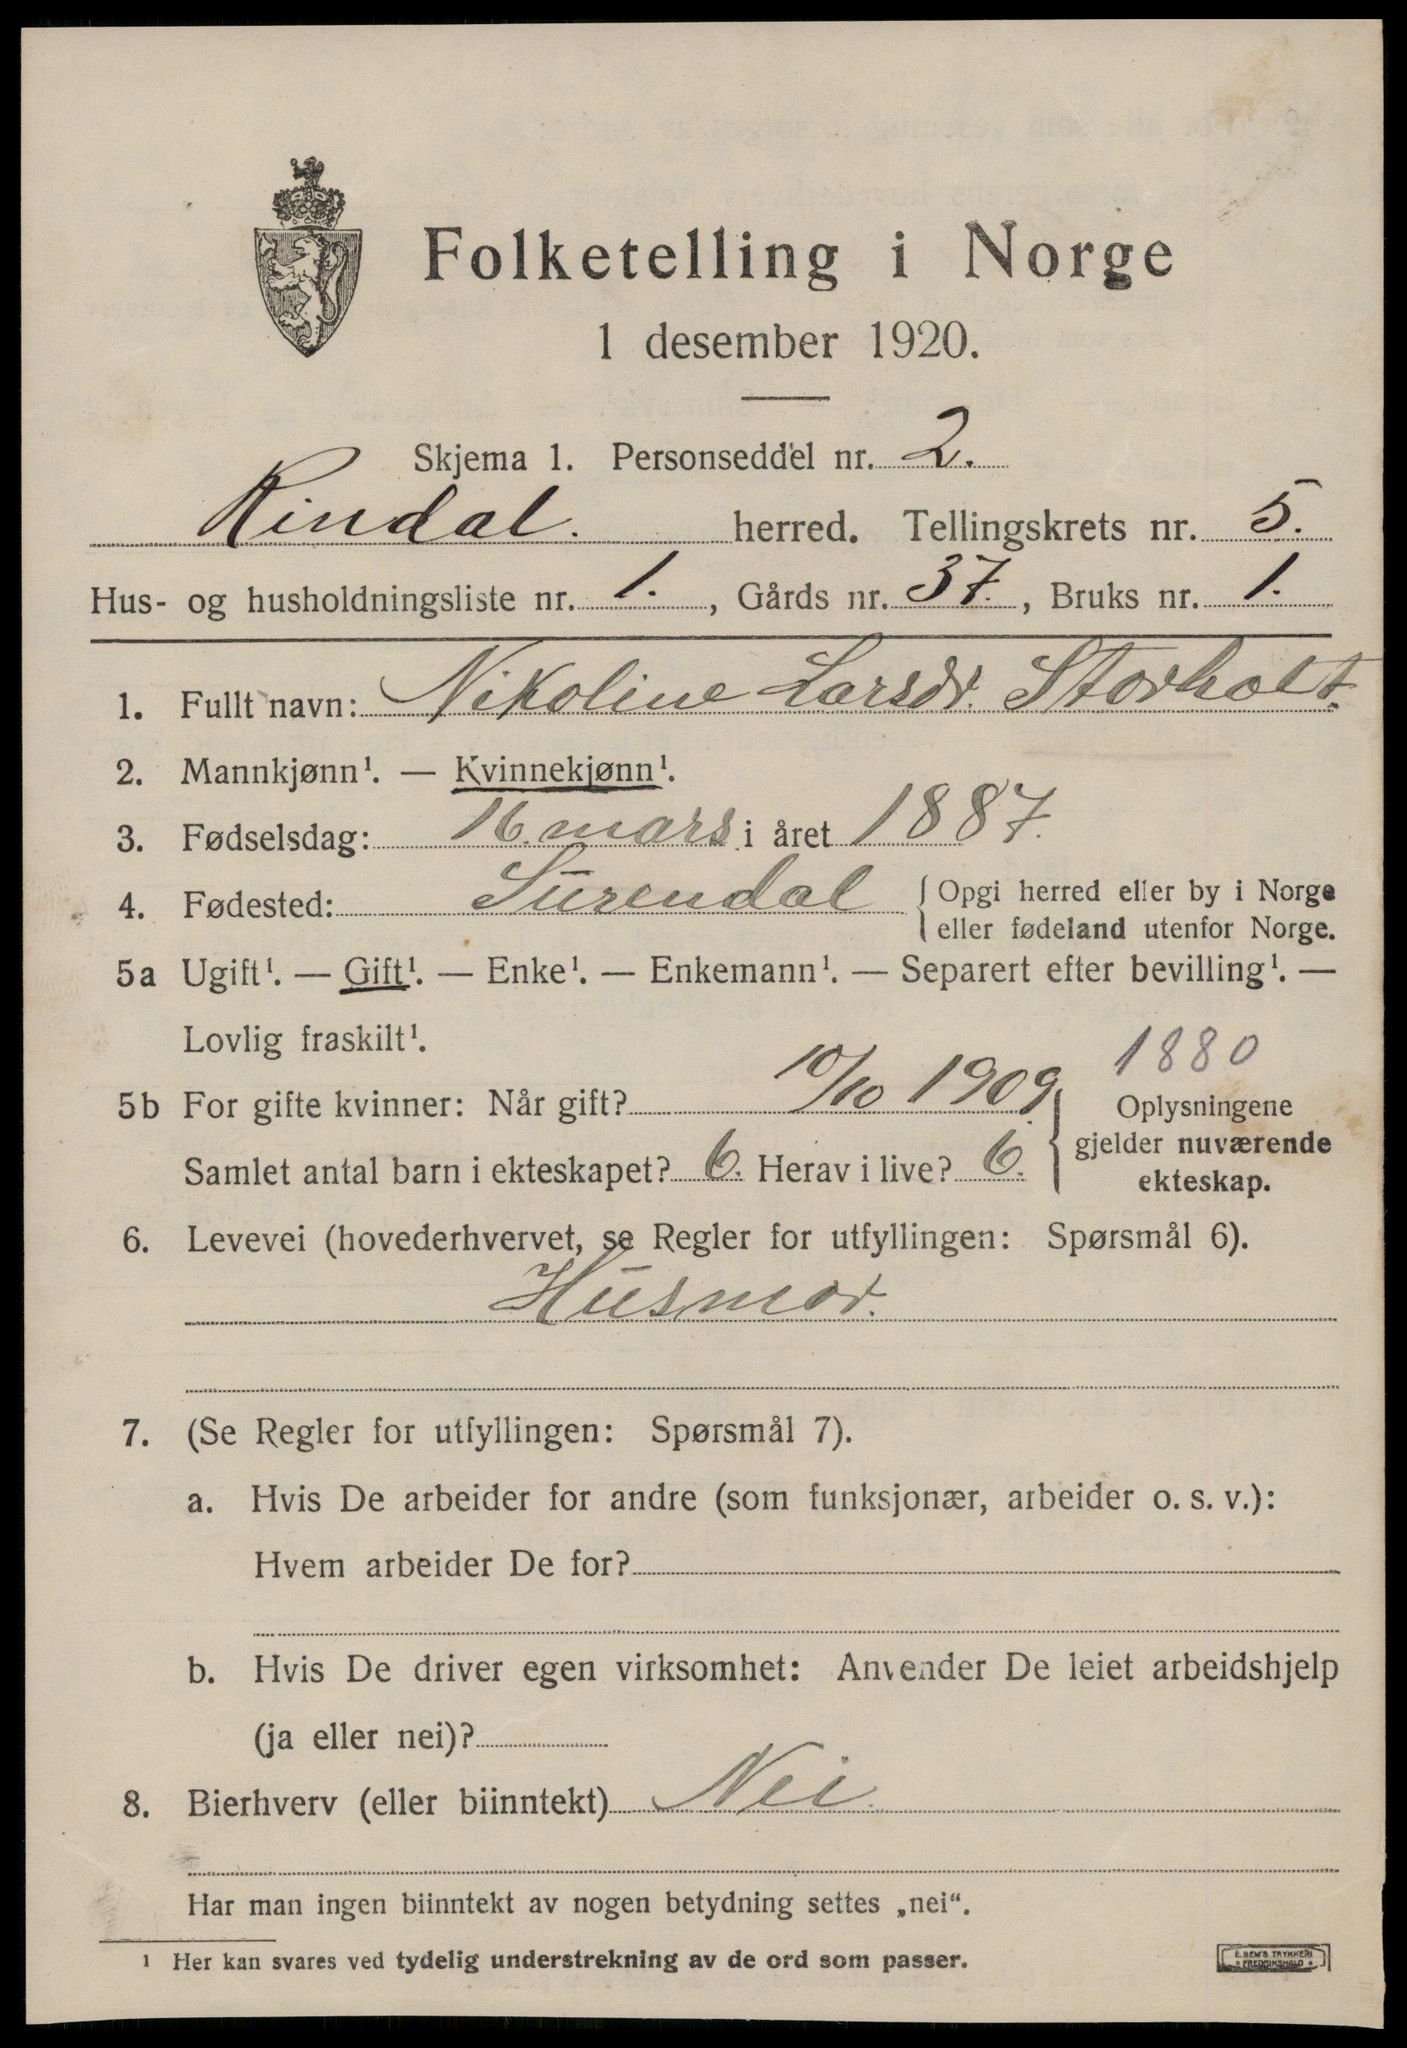 Folketelling i Norge
1 desember 1920.
Skjema 1. Personseddel nr. 2.
Rindal. herred. Tellingskrets nr. 5.
Hus- og husholdningsliste nr. 1. , Gårds nr. 37. , Bruks nr. 1.
1. Fullt navn: Nikoline Larsdr. Storholt.
2. Mannkjønn¹. — Kvinnekjønn¹.
3. Fødselsdag: 16. mars i året 1887.
4. Fødested: Surendal { Opgi herred eller by i Norge
eller fødeland utenfor Norge.
5a Ugift¹. — Gift¹. — Enke¹. — Enkemann¹. — Separert efter bevilling¹. —
Lovlig fraskilt¹.
1880
5b For gifte kvinner: Når gift? 10/10 1909. Oplysningene
gjelder nuværende
Samlet antal barn i ekteskapet? 6. Herav i live? 6. ekteskap.
6. Levevei (hovederhvervet, se Regler for utfyllingen: Spørsmål 6).
Husmor.
7. (Se Regler for utfyllingen: Spørsmål 7).
a. Hvis De arbeider for andre (som funksjonær, arbeider o. s. v.):
Hvem arbeider De for?
b. Hvis De driver egen virksomhet: Anvender De leiet arbeidshjelp
(ja eller nei)?
8. Bierhverv (eller biinntekt) Nei.
Har man ingen biinntekt av nogen betydning settes „nei“.
¹ Her kan svares ved tydelig understrekning av de ord som passer.
E. SEM'S TRYKKERI
* FREDRIKSHALD *